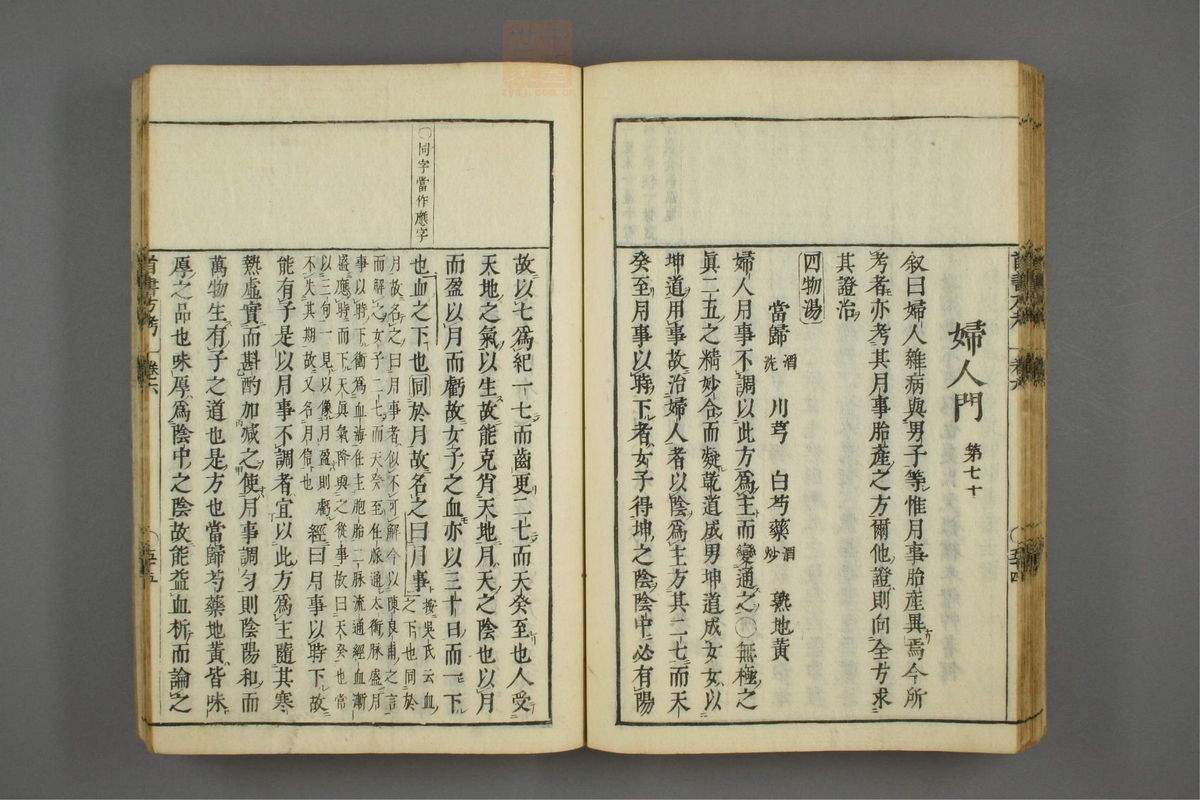 婦人門 第七十
叙曰婦人雜病與男子等惟月事胎産異焉今所
考者亦考其月事胎産之方爾他證則向全方求
其證治
四物湯
當歸酒洗 川芎 白芍藥酒炒 熟地黃
婦人月事不調以此方爲主而變通之○無極之
眞二五之精妙合而凝乾道成男坤道成女女以
坤道用事故治婦人者以陰爲主方其二七而天
癸至月事以時下者女子得坤之陰陰中必有陽
故以七爲紀一七而齒更二七而天癸至也人受
天地之氣以生故能克肖天地月天之陰也以月
而盈以月而虧故女子之血亦以三十日而一下
○同字當作應字
也血之下也同於月故名之曰月事按吳氏云血之下也同於
月故名之曰月事者似不可解今以陳良甫之言
而解之女子二七而天癸至任脈通太衝脈盛月
事以時下衝爲血海任主胞胎二脈流通經血漸
盛應時而下天眞氣降與之從事故曰天癸也常
以三旬一見以像月盈則虧
不失其期故又名月信也
經曰月事以時下故
能有子是以月事不調者宜以此方爲主隨其寒
熱虛實而斟酌加減之使月事調勻則陰陽和而
萬物生有子之道也是方也當歸芍藥地黃皆味
厚之品也味厚爲陰中之陰故能益血析而論之
首書方考
卷六